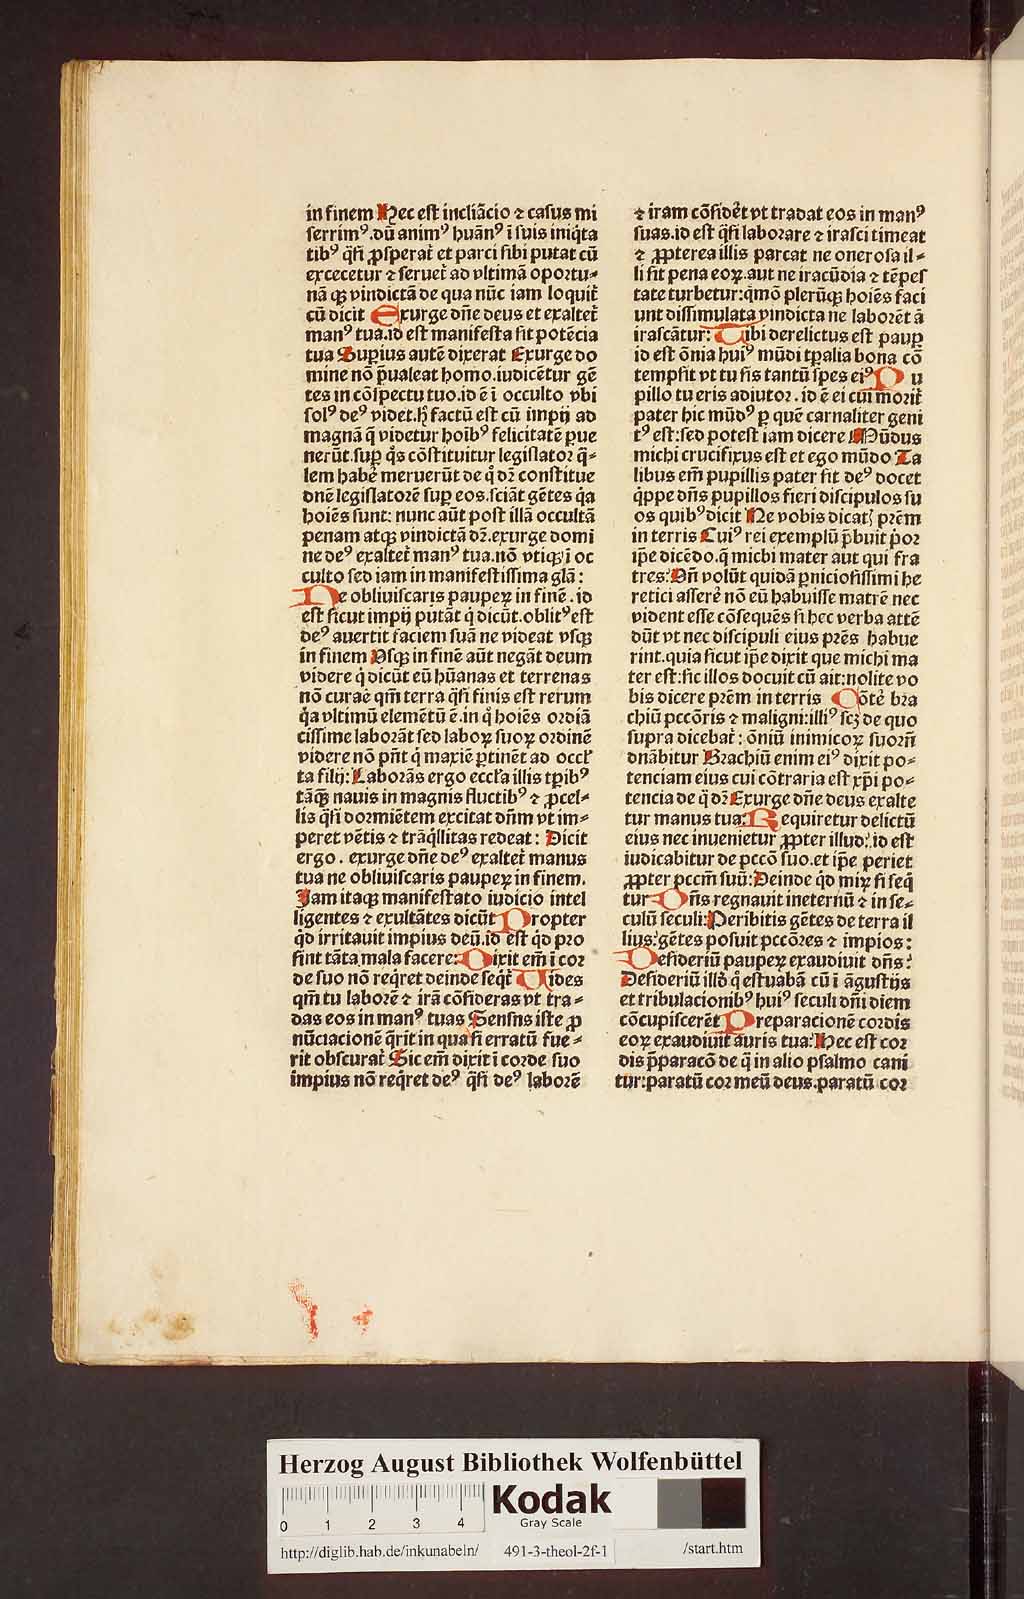 in finem Hec est incliãcio ⁊ casus mi
serrimꝰ.dũ animꝰ huãnꝰ ĩ suis iniq̃ta
tibꝰ q̃si ꝓsperat̃ et parci sibi putat cũ
excecetur ⁊ seruet̃ ad vltimã oportu-
nã qꝫ vindictã de qua nũc iam loquit̃
cũ dicit Exurge dñe deus et exaltet̃
manꝰ tua.id est manifesta fit potẽcia
tua Suꝑius autẽ dixerat Exurge do
mine nõ p̃ualeat homo.iudicẽtur gẽ
tes in cõspectu tuo.id ẽ ĩ occulto vbi
solꝰ deꝰ videt.h̃ factũ est cũ impij ad
magnã q̃ videtur hoĩbꝰ felicitatẽ ꝑue
nerũt.suꝑ q̃s cõstituitur legislator q̃-
lem haber̃ meruerũt de q̃ dꝛ̃ constitue
dñe legislatorẽ suꝑ eos.sciãt gẽtes q̃a
hoiẽs sunt: nunc aũt post illã occultã
penam atqꝫ vindictã dꝛ̃.exurge domi
ne deꝰ exaltet̃ manꝰ tua.nõ vtiqꝫ ĩ oc
culto sed iam in manifestissima gl̃a:
Ne obliuiscaris pauperꝝ in finẽ.id
est sicut impij putãt q̃ dicũt.oblitꝰ est
deꝰ auertit faciem suã ne videat vsqꝫ
in finem Vsqꝫ in finẽ aũt negãt deum
videre q̃ dicũt eũ hũanas et terrenas
nõ curar̃ qm̃ terra q̃si finis est rerum
q̃a vltimũ elemẽtũ ẽ.in q̃ hoiẽs ordiã
cissime laborãt sed laboꝝ suoꝝ ordinẽ
videre nõ pñt q̃ maxiẽ ꝑtinẽt ad occl̃
ta filij: Laborãs ergo eccl̃a illis tꝑibꝰ
tãqꝫ nauis in magnis fluctibꝰ ⁊ ꝓcel-
lis q̃si dormiẽtem excitat dñm vt im-
peret vẽtis ⁊ trãq̃llitas redeat: Dicit
ergo. exurge dñe deꝰ exaltet̃ manus
tua ne obliuiscaris paupeꝝ in finem.
Jam itaqꝫ manifestato iudicio intel
ligentes ⁊ exultãtes dicũt Propter
q̃d irritauit impius deũ.id est q̃d pro
fint tãta mala facere: Dixit em̃ ĩ cor
de suo nõ req̃ret deinde seq̃t̃ Uides
qm̃ tu laborẽ ⁊ irã cõsideras vt tra-
das eos in manꝰ tuas Sensꝰ iste ꝑ
nũciacionẽ q̃rit in qua si erratũ fue-
rit obscurat̃ Sic em̃ dixit ĩ corde suo
impius nõ req̃ret deꝰ q̃si deꝰ laborẽ
⁊ iram cõsider̃t vt tradat eos in manꝰ
suas.id est q̃si laborare ⁊ irasci timeat
⁊ ꝓpterea illis parcat ne onerosa il-
li fit pena eoꝝ.aut ne iracũdia ⁊ tẽpes
tate turbetur:q̃mõ plerũqꝫ hoiẽs faci
unt dissimulata vindicta ne laborẽt ã
irascãtur: Tibi derelictus est pauꝑ
id est õnia huiꝰ mũdi tꝑalia bona cõ
tempsit vt tu sis tantũ spes eiꝰ Pu
pillo tu eris adiutor. id ẽ ei cui morit̃
pater hic mũdꝰ ꝑ quẽ carnaliter geni
tꝰ est:sed potest iam dicere Mũdus
michi crucifixus est et ego mũdo Ta
libus em̃ pupillis pater fit deꝰ docet
q̃ppe dñs pupillos fieri discipulos su
os quibꝰ dicit Ne vobis dicatꝭ pr̃em
in terris Cuiꝰ rei exemplũ p̃buit p̃or
ip̃e dicẽdo.q̃ michi mater aut qui fra
tres: Vñ volũt quidã ꝑniciosissimi he
retici asserer̃ nõ eũ habuisse matrẽ nec
vident esse cõsequẽs si hec verba attẽ
dũt vt nec discipuli eius pr̃es habue
rint.quia sicut ip̃e dixit que michi ma
ter est:sic illos docuit cũ ait:nolite vo
bis dicere pr̃em in terris Cõter̃ bra
chiũ pccõris ⁊ maligni:illiꝰ scꝫ de quo
supra dicebat̃: õniũ inimicoꝝ suorũ
dñabitur Brachiũ enim eiꝰ dixit po-
tenciam eius cui cõtraria est xp̃i po-
tencia de q̃ dꝛ̃ Exurge dñe deus exalte
tur manus tua: Requiretur delictũ
eius nec inuenietur ꝓpter illud:.id est
iudicabitur de pccõ suo.et ip̃e periet
ꝓpter pccm̃ suũ: Deinde q̃d miꝝ si seq̃
tur Dñs regnauit ineternũ ⁊ in se-
culũ seculi: Peribitis gẽtes de terra il
lius:gẽtes posuit pccõres ⁊ impios:
Desideriũ paupeꝝ exaudiuit dñs:
Desideriũ illd̃ q̃ estuabã cũ ĩ ãgustijs
et tribulacionibꝰ huiꝰ seculi dñi diem
cõcupiscerẽt Preparacionẽ cordis
eoꝝ exaudiuit auris tua: Hec est cor
dis p̃paracõ de q̃ in alio psalmo cani
tur:paratũ cor meũ deus.paratũ cor
Herzog August Bibliothek Wolfenbüttel
0 1 2 3 4
Kodak
Gray Scale
http://diglib.hab.de/inkunabeln/ 491-3-theol-2f-1 /start.htm